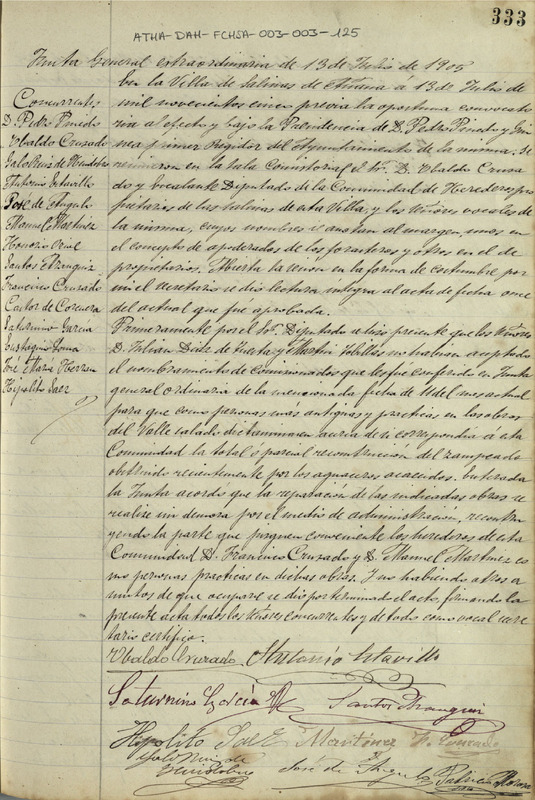 333
ATHA-DAH-FCHSA-003-003-125
Junta General extraordinaria de 13 de Julio de 1905
Concurrentes
D. Pedro Pinedo
Ubaldo Cruzado
Galo Ruiz de
Antonio Estavillo
José de Angulo
Manuel Martinez
Honorio
Santos Aranguiz
Francisco Cruzado
Castor de Corcuera
Saturnino Garcia
Eustaquio
José Maria Herran
Hipolito Saez
En la Villa de Salinas de Añana á 13 de Julio de
mil novecientos cinco previa la oportuna convocato
ria al efecto y bajo la Presidencia de D. Pedro Pinedo y
primer Regidor del Ayuntamiento de la misma, se
reunieron en la Sala Consistorial el Sr. D. Ubaldo Cruza
do y Diputado de la Comunidad de Herederos pro
pietarios de las Salinas de esta Villa, y los Señores vocales de
la misma, cuyos nombres se anotan al margen, unos en
el concepto de apoderados de los forasteros y otros en el de
propietarios. Abierta la sesión en la forma de costumbre por
mi el Secretario se dio lectura integra al acta de fecha once
del actual que fué aprobada.
Primeramente por el Sr. Diputado se hizo presente que los Señores
D. Julian Diaz de Tuesta y Martin Tobillas no habian aceptado
el nombramiento de Comisionados que les fue conferido en Junta
general ordinaria de la mencionada fecha de 11 del mes actual
para que como personas mas antiguas y practicas en las obras
del Valle salado dictaminasen acerca de si correspondia á esta
Comunidad la total ó parcial reconstrucción del zampeado
destruido recientemente por los aguaceros acaecidos. Enterada
la Junta acordó que la reparación de las indicadas obras se
realize sin demora por el medio de administración, reconstru
yendo la parte que juzguen conveniente los herederos de esta
Comunidad D. Francisco Cruzado y D. Manuel Martinez co
mo personas practicas en dichas obras. Y no habiendo otros a
suntos de que ocuparse se dio por terminado el acto, firmando la
presente acta todos los Señores concurrentes y de todo como vocal secre
tario certifico.
Ubaldo Cruzado Antonio Estavillo
Saturnino Garcia Santos Aranguiz
Hipolito Saez Martinez F. Cruzado
Galo Ruiz de
José de Angulo Patricio